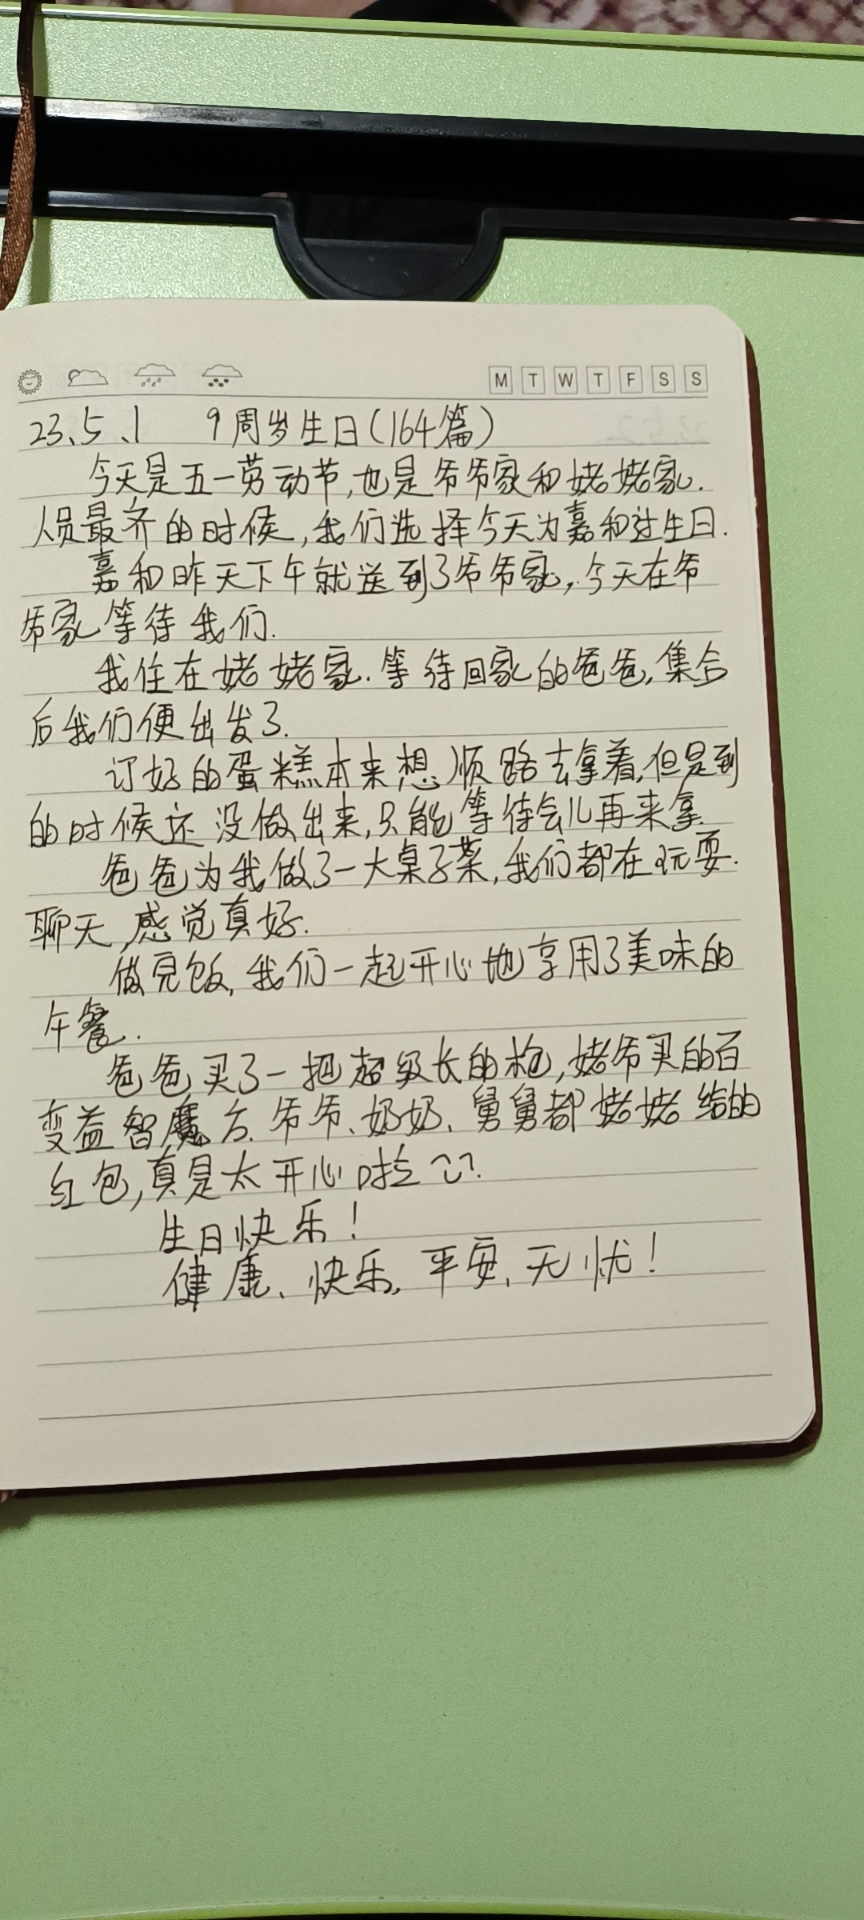 M T W T F S S
23、5、1 9周岁生日(164篇)
今天是五一劳动节,也是爷爷家和姥姥家.
人员最齐的时候,我们选择今天为嘉和过生日.
嘉和昨天下午就送到了爷爷家,今天在爷
爷家等待我们.
我住在姥姥家.等待回家的爸爸,集合
后我们便出发了.
订好的蛋糕本来想顺路去拿着,但是到
的时候还没做出来,只能等待会儿再来拿.
爸爸为我做了一大桌子菜,我们都在玩耍.
聊天,感觉真好.
做完饭,我们一起开心地享用了美味的
午餐.
爸爸买了一把超级长的枪,姥爷买的百
变益智魔方.爷爷、奶奶、舅舅都姥姥给的
红包,真是太开心啦~~.
生日快乐!
健康、快乐、平安、无忧!